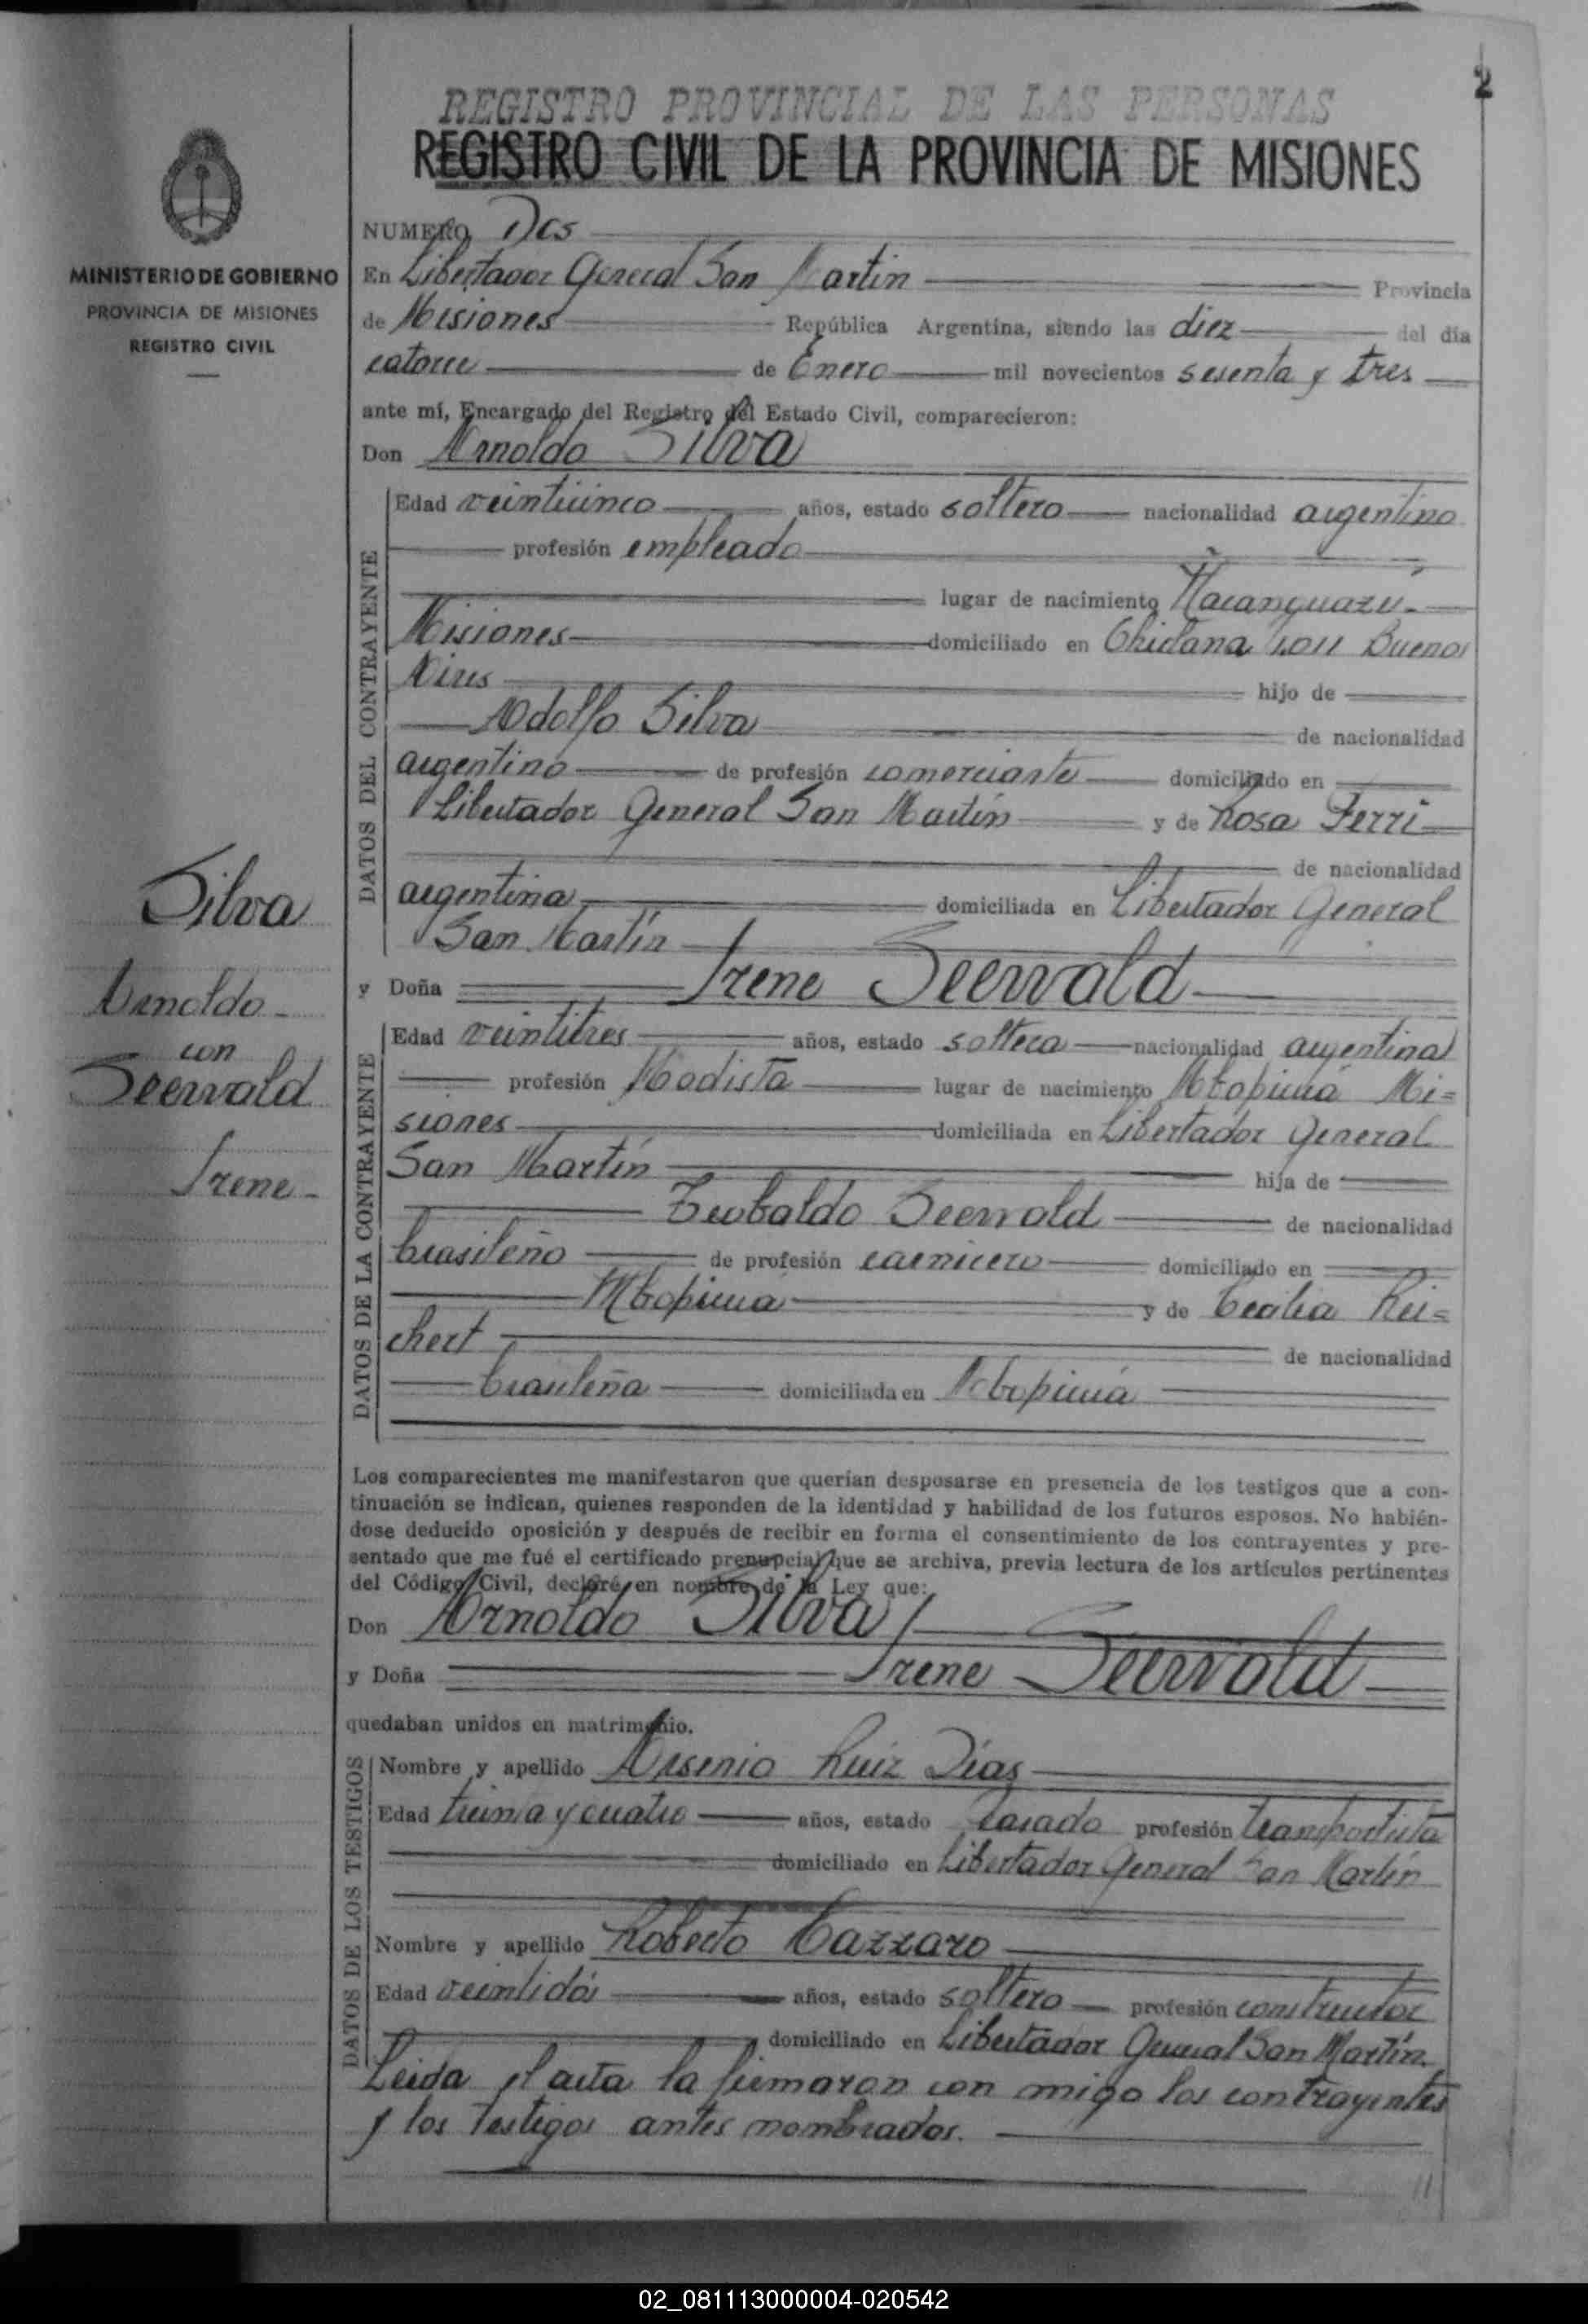 2
REGISTRO PROVINCIAL DE LAS PERSONAS
REGISTRO CIVIL DE LA PROVINCIA DE MISIONES
MINISTERIO DE GOBIERNO
PROVINCIA DE MISIONES
REGISTRO CIVIL
NUMERO Dos
En Libertador General San Martin Provincia
de Misiones República Argentina, siendo las diez del día
catorce de Enero mil novecientos sesenta y tres
ante mí, Encargado del Registro del Estado Civil, comparecieron:
Don Arnoldo Silva
DATOS DEL CONTRAYENTE
Edad veinticinco años, estado soltero nacionalidad argentino
profesión empleado
lugar de nacimiento Ñacanguazú
Misiones domiciliado en Chiclana Buenos
Aires hijo de
Adolfo Silva de nacionalidad
argentino de profesión comerciante domiciliado en
Libertador General San Martín y de Rosa Ferri
de nacionalidad
argentina domiciliada en Libertador General
San Martín
y Doña Irene Seewald
Silva
Arnoldo
con
Seewald
Irene
DATOS DE LA CONTRAYENTE
Edad veintitres años, estado soltera nacionalidad argentina
profesión Modista lugar de nacimiento Mbopicuá Mi=
siones domiciliada en Libertador General
San Martín hija de
Teobaldo Seewald de nacionalidad
brasileño de profesión carnicero domiciliado en
Mbopicuá y de Cecilia Rei=
chert de nacionalidad
brasileña domiciliada en Mbopicuá
Los comparecientes me manifestaron que querían desposarse en presencia de los testigos que a con-
tinuación se indican, quienes responden de la identidad y habilidad de los futuros esposos. No habién-
dose deducido oposición y después de recibir en forma el consentimiento de los contrayentes y pre-
sentado que me fué el certificado prenupcial que se archiva, previa lectura de los artículos pertinentes
del Código Civil, declaré en nombre de la Ley que:
Don Arnoldo Silva
y Doña Irene Seewald
quedaban unidos en matrimonio.
DATOS DE LOS TESTIGOS
Nombre y apellido Arsenio Ruiz Días
Edad treinta y cuatro años, estado casado profesión transportista
domiciliado en Libertador General San Martín
Nombre y apellido Roberto Cazzaro
Edad veintidós años, estado soltero profesión constructor
domiciliado en Libertador General San Martín.
Leida el acta la firmaron con migo los contrayentes
y los testigos antes nombrados.
02_081113000004-020542